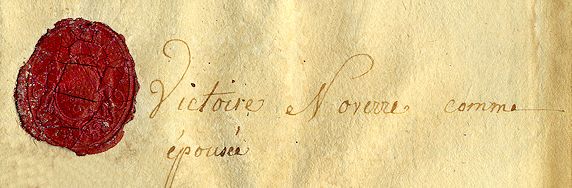 Victoire Noverre comme
épousée